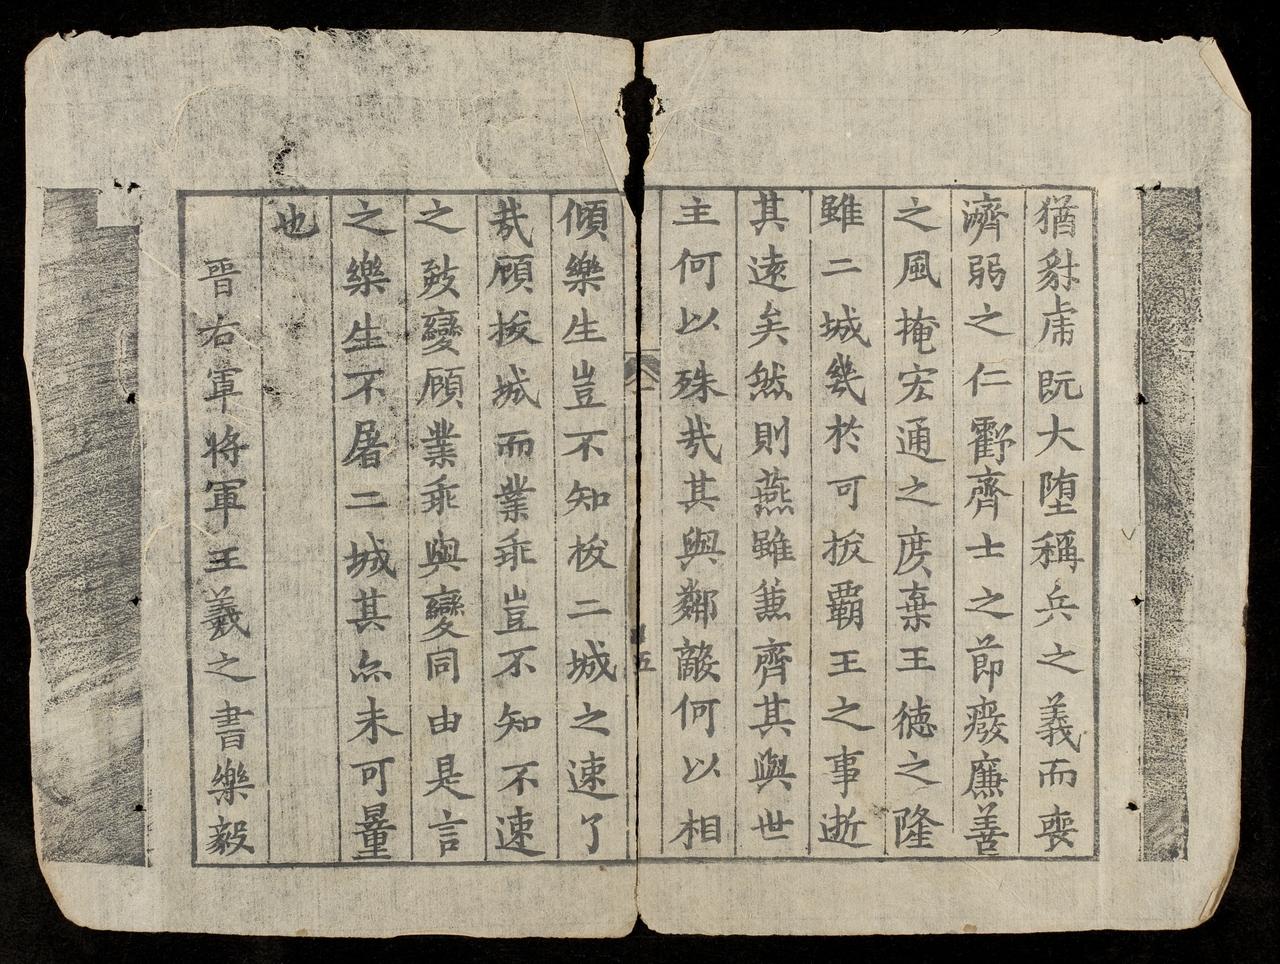 猶豺虎既大墮稱兵之義而喪
濟弱之仁虧齊士之節廢廉善
之風掩宏通之度棄王德之隆
雖二城幾於可拔霸王之事逝
其遠矣然則燕雖兼齊其與世
主何以殊哉其與鄰敵何以相
五
傾樂生豈不知拔二城之速了
哉顧拔城而業乖豈不知不速
之致變顧業乖與變同由是言
之樂生不屠二城其亦未可量
也
晉右軍將軍王羲之書樂毅